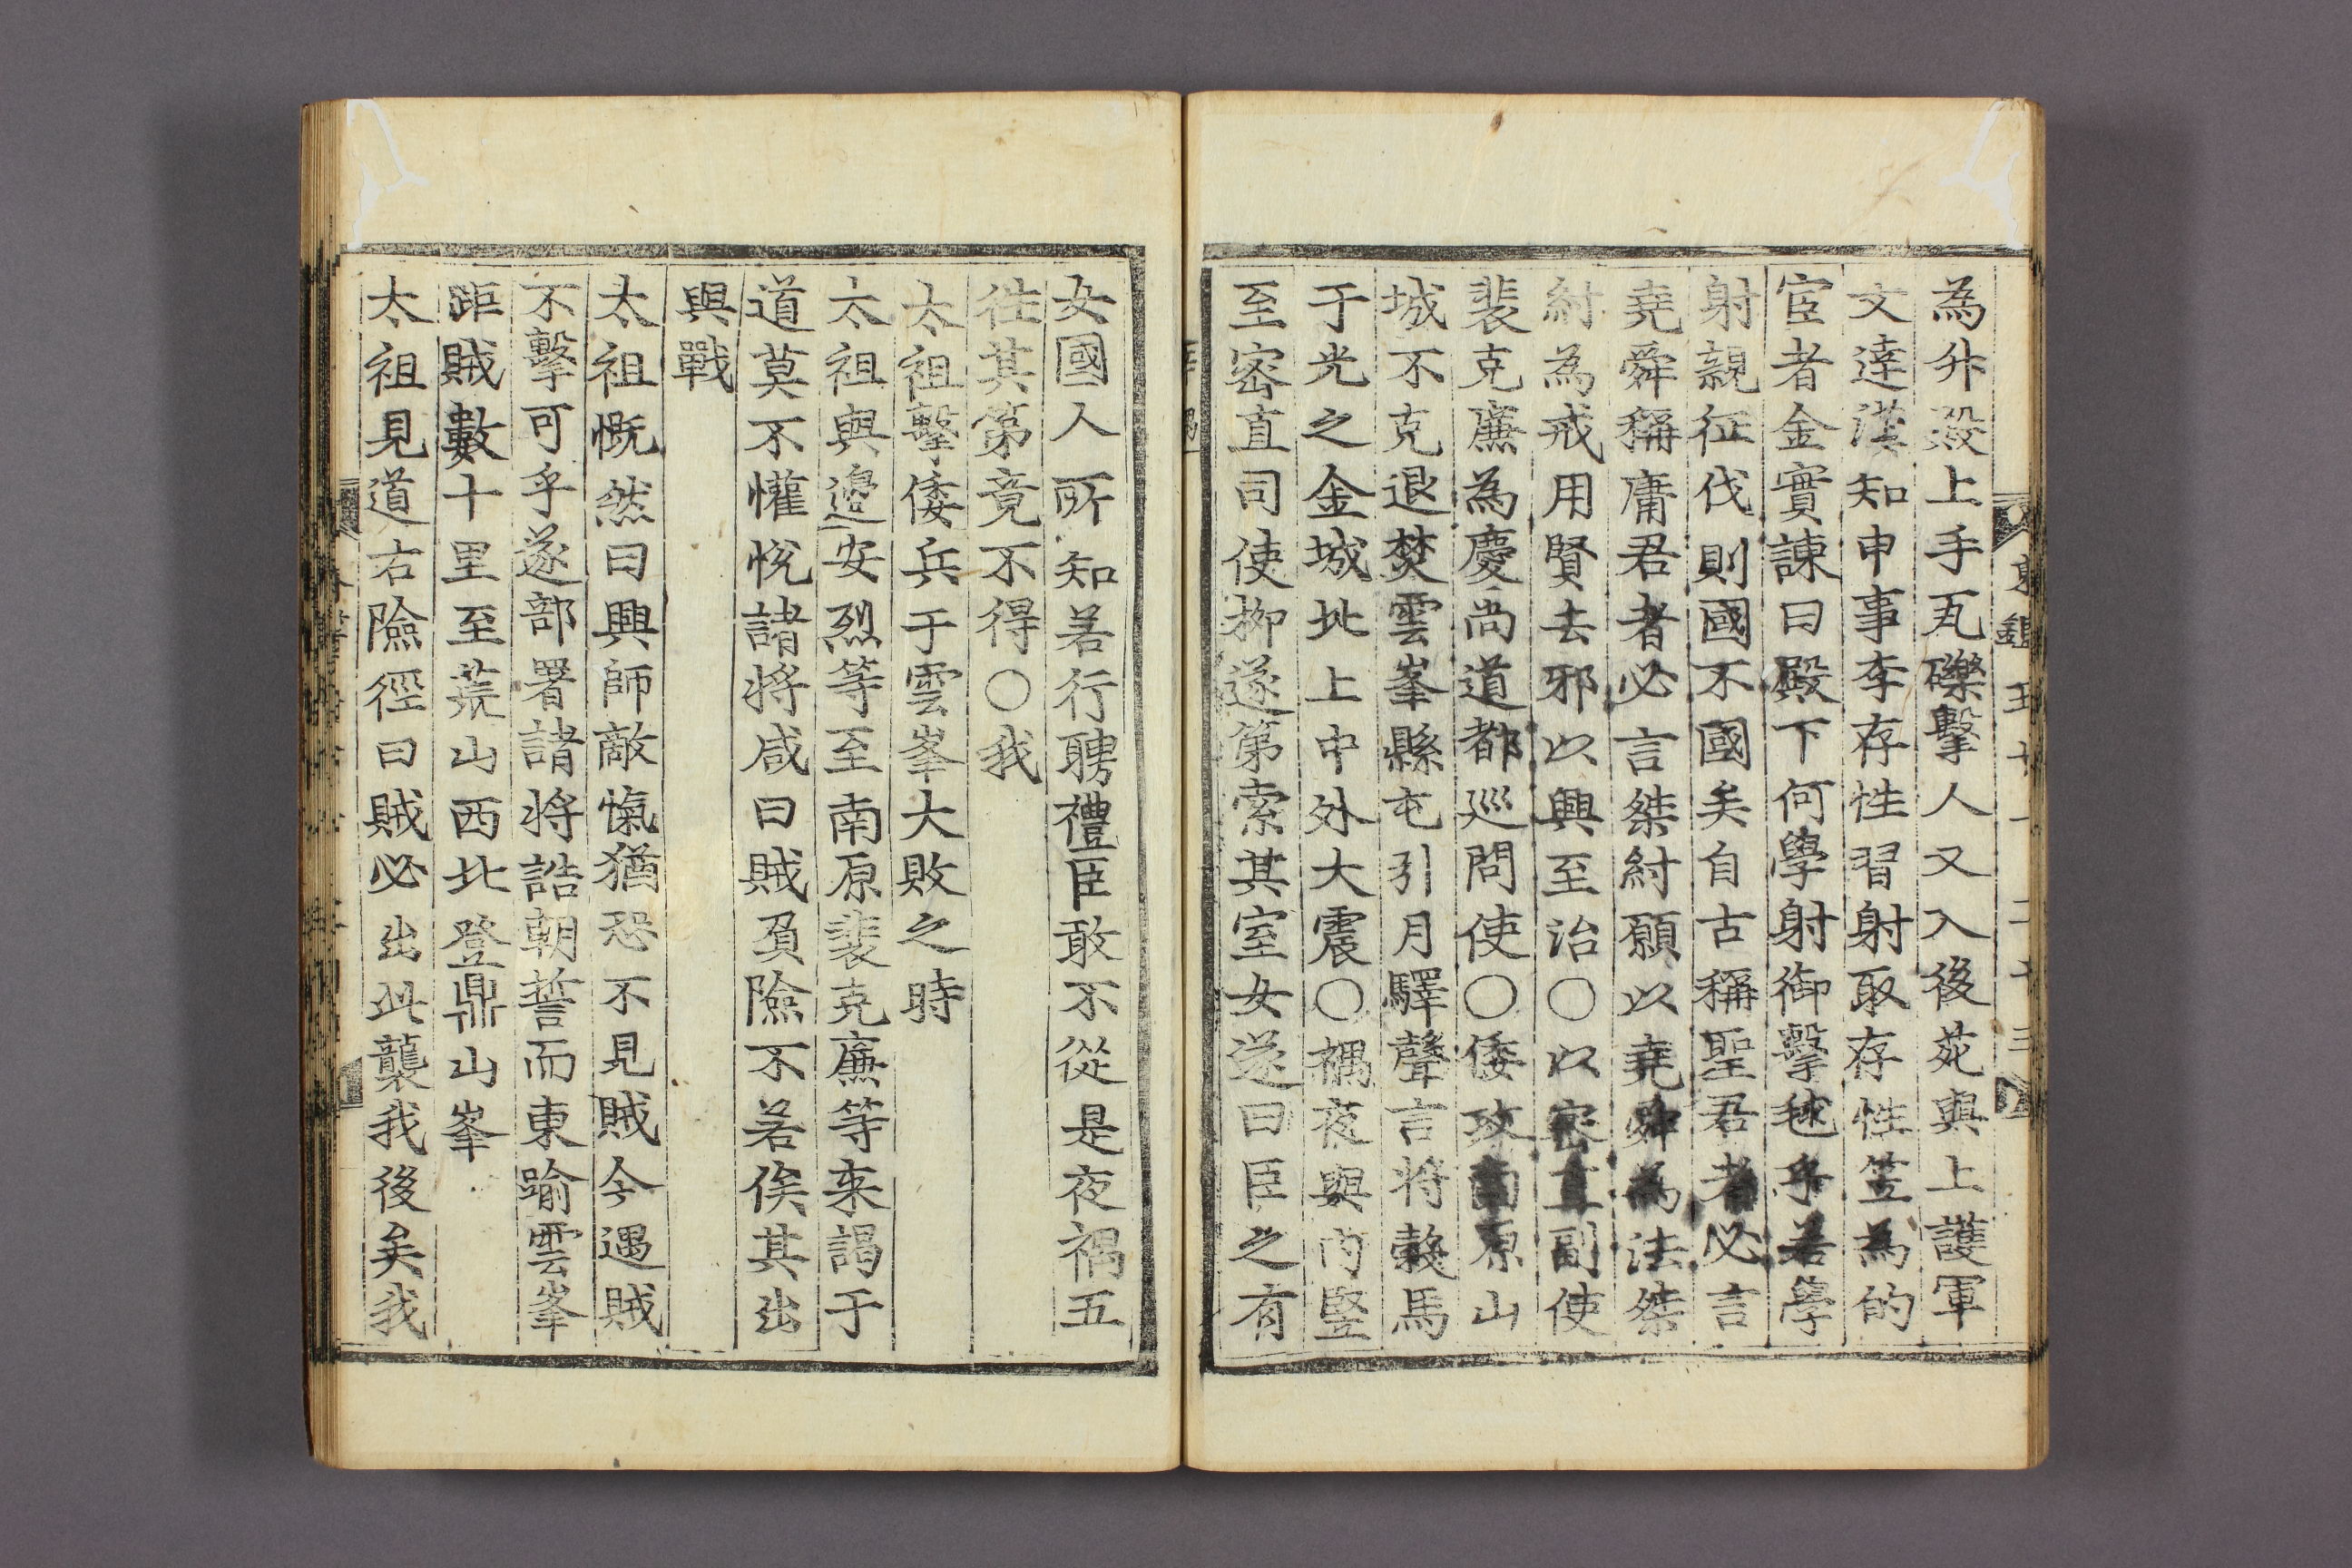 東鑑五十一 二十三
為升殿上手瓦礫擊人又入後苑與上護軍
文達漢知申事李存性習射取存性笠為的
宦者金實諫曰殿下何學射御擊毬乎若學
射親征伐則國不國矣自古稱聖君者必言
堯舜稱庸君者必言桀紂願以堯舜為法桀
紂為戒用賢去邪以興至治○以密直副使
裴克廉為慶尚道都巡問使○倭攻南原山
城不克退焚雲峯縣屯引月驛聲言將穀馬
于光之金城北上中外大震○禑夜與內竪
至密直司使柳遂第索其室女遂曰臣之有
女國人所知若行聘禮臣敢不從是夜禑五
徃其第竟不得○我
太祖擊倭兵于雲峯大敗之時
太祖與邊安烈等至南原裴克廉等来謁于
道莫不懽悅諸將咸曰賊負險不若俟其出
與戰
太祖慨然曰興師敵愾猶恐不見賊今遇賊
不擊可乎遂部署諸將誥朝誓而東踰雲峯
距賊數十里至荒山西北登鼎山峯
太祖見道右險徑曰賊必出此襲我後矣我